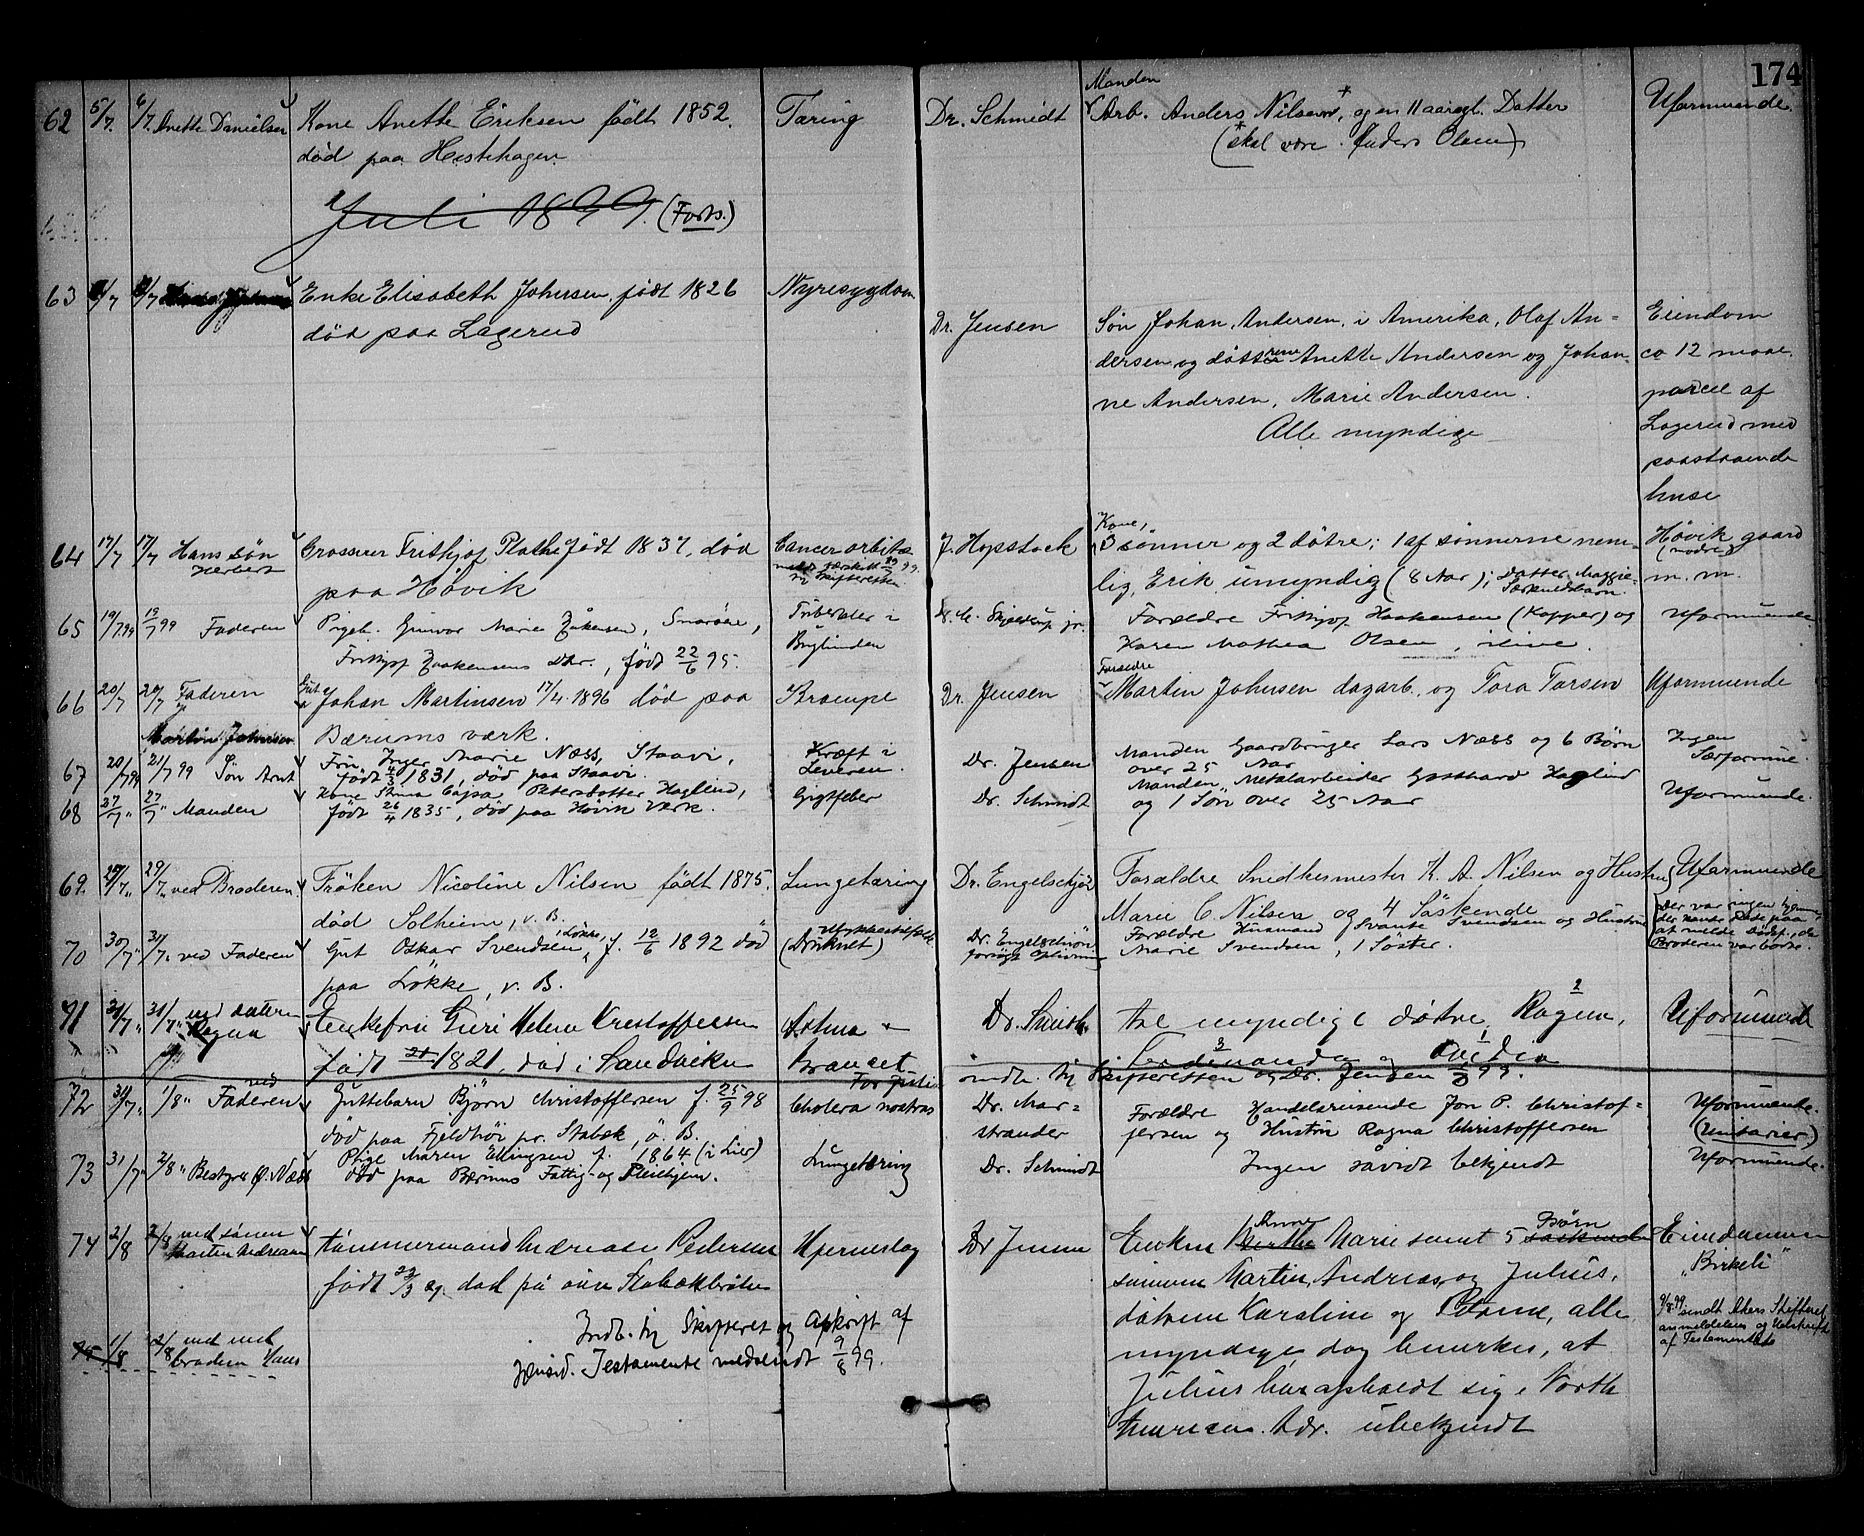 174
62 5/7. 6/7. Anette Danielsen Kone Anette Eriksen født 1852. Tæring Dr. Schmidt Manden Arb. Anders Nilsen, og en 11 aarigl. Datter Uformuende.
død paa Hestehagen (* skal være Anders Olsen)
Juli 1899. (Forts.)
63 Enke Elisabeth Johnsen, født 1826 Nyresygdom
død paa Lagerud Dr. Jensen Søn Johan Andersen, i Amerika, Olaf An= Eiendom
dersen og døttrene Anette Andersen og Johan= ca 12 maal
ne Andersen, Marie Andersen. parcel af
Alle myndige Lagerud med
paastaaende
huse
64 17/7 17/7 Hans søn Herbert Grosserer Frithjof Plathe født 1837, død Cancer orbitæ J. Hopstock Kone, 3 sønner og 2 døtre; 1 af sønnerne nem= Høvik gaard
paa Høvik lig, Erik umyndig (8 Aar); Datter Maggie= Særkuldsbarn. (nodre) m. m.
65 19/7 99 19/7 99 Faderen Pigeb. Gunvor Marie Haakensen, Snarøen, Tuberkler i D. M. Skjelderup jr. Forældre Frithjof Haakensen (Kopper) og Uformuende
Frithjof Haakensens Dtr., født 22/6 95. Buglinden Karen Mathea Olsen, ilive.
66 20/7 20/7 Faderen Gut Johan Martinsen 17/4 1896 død paa Krampe Dr. Jensen Forældre Martin Johnsen dagarb. og Tora Larsen Uformuende
Martin Johnsen Bærums værk.
67 20/7 99 21/7 99 Søn Arnt Fru Inger Marie Næss, Staavi, Kræft i Dr. Jensen Manden Gaardbruger Lars Næss og 6 Børn Ingen
født 4/3 1831, død paa Staavi. Leveren. over 25 Aar Særformue.
68 27/7 " 27/7 " Manden Kone Stina Cajsa Petersdotter Haglund, Gigtfeber Dr. Schmidt Manden, Metalarbeider Gotthard Haglund Uformuende.
født 26/4 1835, død paa Høvik Værk. og 1 Søn over 25 Aar
69. 29/7 " 29/7 " ved Broderen. Frøken Nicoline Nilsen født 1875. Lungetæring Dr. Engelschjøn Forældre Snedkermester K. A. Nilsen og Hustru Uformuende
død Solheim, v. B. Marie C. Nilsen og 4 Søskende
70 30/7 " 31/7 " ved Faderen Gut Oskar Svendsen, Løkke, f. 12/6 1892 død Ulykkestilfælde (Druknet) Dr. Engelschjøn forsøgt Oplivning Forældre Husmand Svante Svendsen og Hustru
paa Løkke, v. B. Marie Svendsen, 1 Søster.
71 31/7 " 31/7 " ved datteren Ragna Enkefru Guri Helene Kristoffersen Astma Dr. Smith tre myndige døtre, Ragna, Uformuende
født 1821, død i Sandviken Brancet Ferdinanda og Ovidia
indb. til Skifteretten og Dr. Jensen 99.
72 31/7 " 1/8 " ved Faderen Guttebarn Bjørn Christoffersen f. 25/9 98 Cholera nostras Dr. Mar= Forældre Handelsreisende Jon P. Christof= Uformuende.
død paa Fjeldhøi pr. Stabæk, ö. B. strander fersen og Hustru Ragna Christoffersen (Unitarier.)
73 31/7 " 2/8 " Bestyrer Ø. Næss Pige Maren Ellingsen f. 1864 (i Lier) Lungetæring Dr. Schmidt Ingen saavidt bekjendt Uformuende.
død paa Bærums Fattig- og Pleiehjem.
74 2/8 2/8 ved sønnen Martin Andreasen tømmermand Andreas Pedersen Hjerneslag Dr Jensen Enken Anne Marie samt 5 Børn Eiendommen
født 22/3 og død på øvre Stabækbråten sønnerne Martin, Andreas, og Julius, "Birkeli"
døtrene Karoline og Petrine, alle 9/8 99 sendt Akers Skifteret
Indb. til Skifteret og Afskrift af anmeldelsen og Udskrift
75 1/8 2/8 ved med broderen Hans Testamente medsendt 9/8 99. af Testamentet
myndige, dog bemerkes, at
Julius har opholdt sig i North
Amerika. Adr. ubekjendt